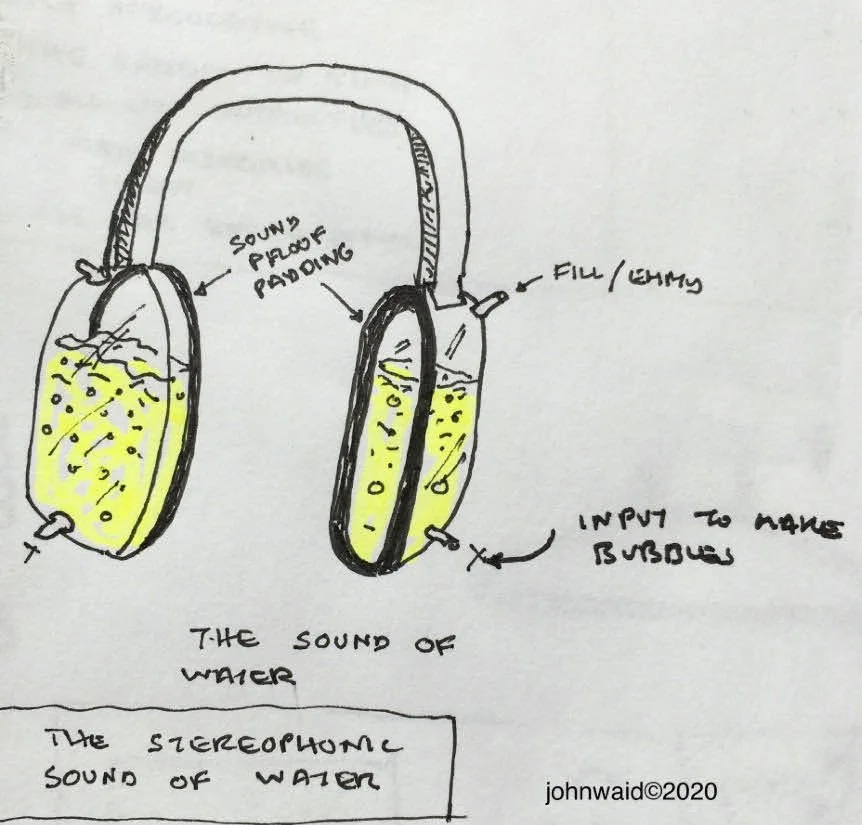 SOUND
PROOF
PADDING
FILL/EMMY
INPUT TO MAKE
BUBBLES
THE SOUND OF
WATER
THE STEREOPHONIC
SOUND OF WATER
johnwaid©2020